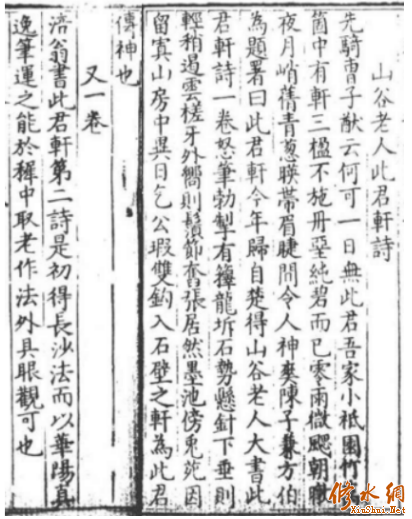 山谷老人此君軒詩
先騎曹子猷云何可一日無此君吾家小祇園竹
箇中有軒三楹不施丹堊純碧而已零雨微颸朝暾
夜月峭蒨青蔥暎帶眉睫間令人神爽陳子兼方伯
為題署曰此君軒今年歸自楚得山谷老人大書此
君軒詩一卷怒筆勃掣有籜龍坼石勢懸針下垂則
輕稍遏雲槎牙外嚮則鬚節奮張居然墨池傍兎因
留寘山房中異日乞公瑕雙鈎入石壁之軒為此君
傳神也
又一卷
涪翁書此君軒第二詩是初得長沙法而以華陽真
逸筆運之能於穉中取老作法外具眼觀可也
修水網
XiuShui.Net